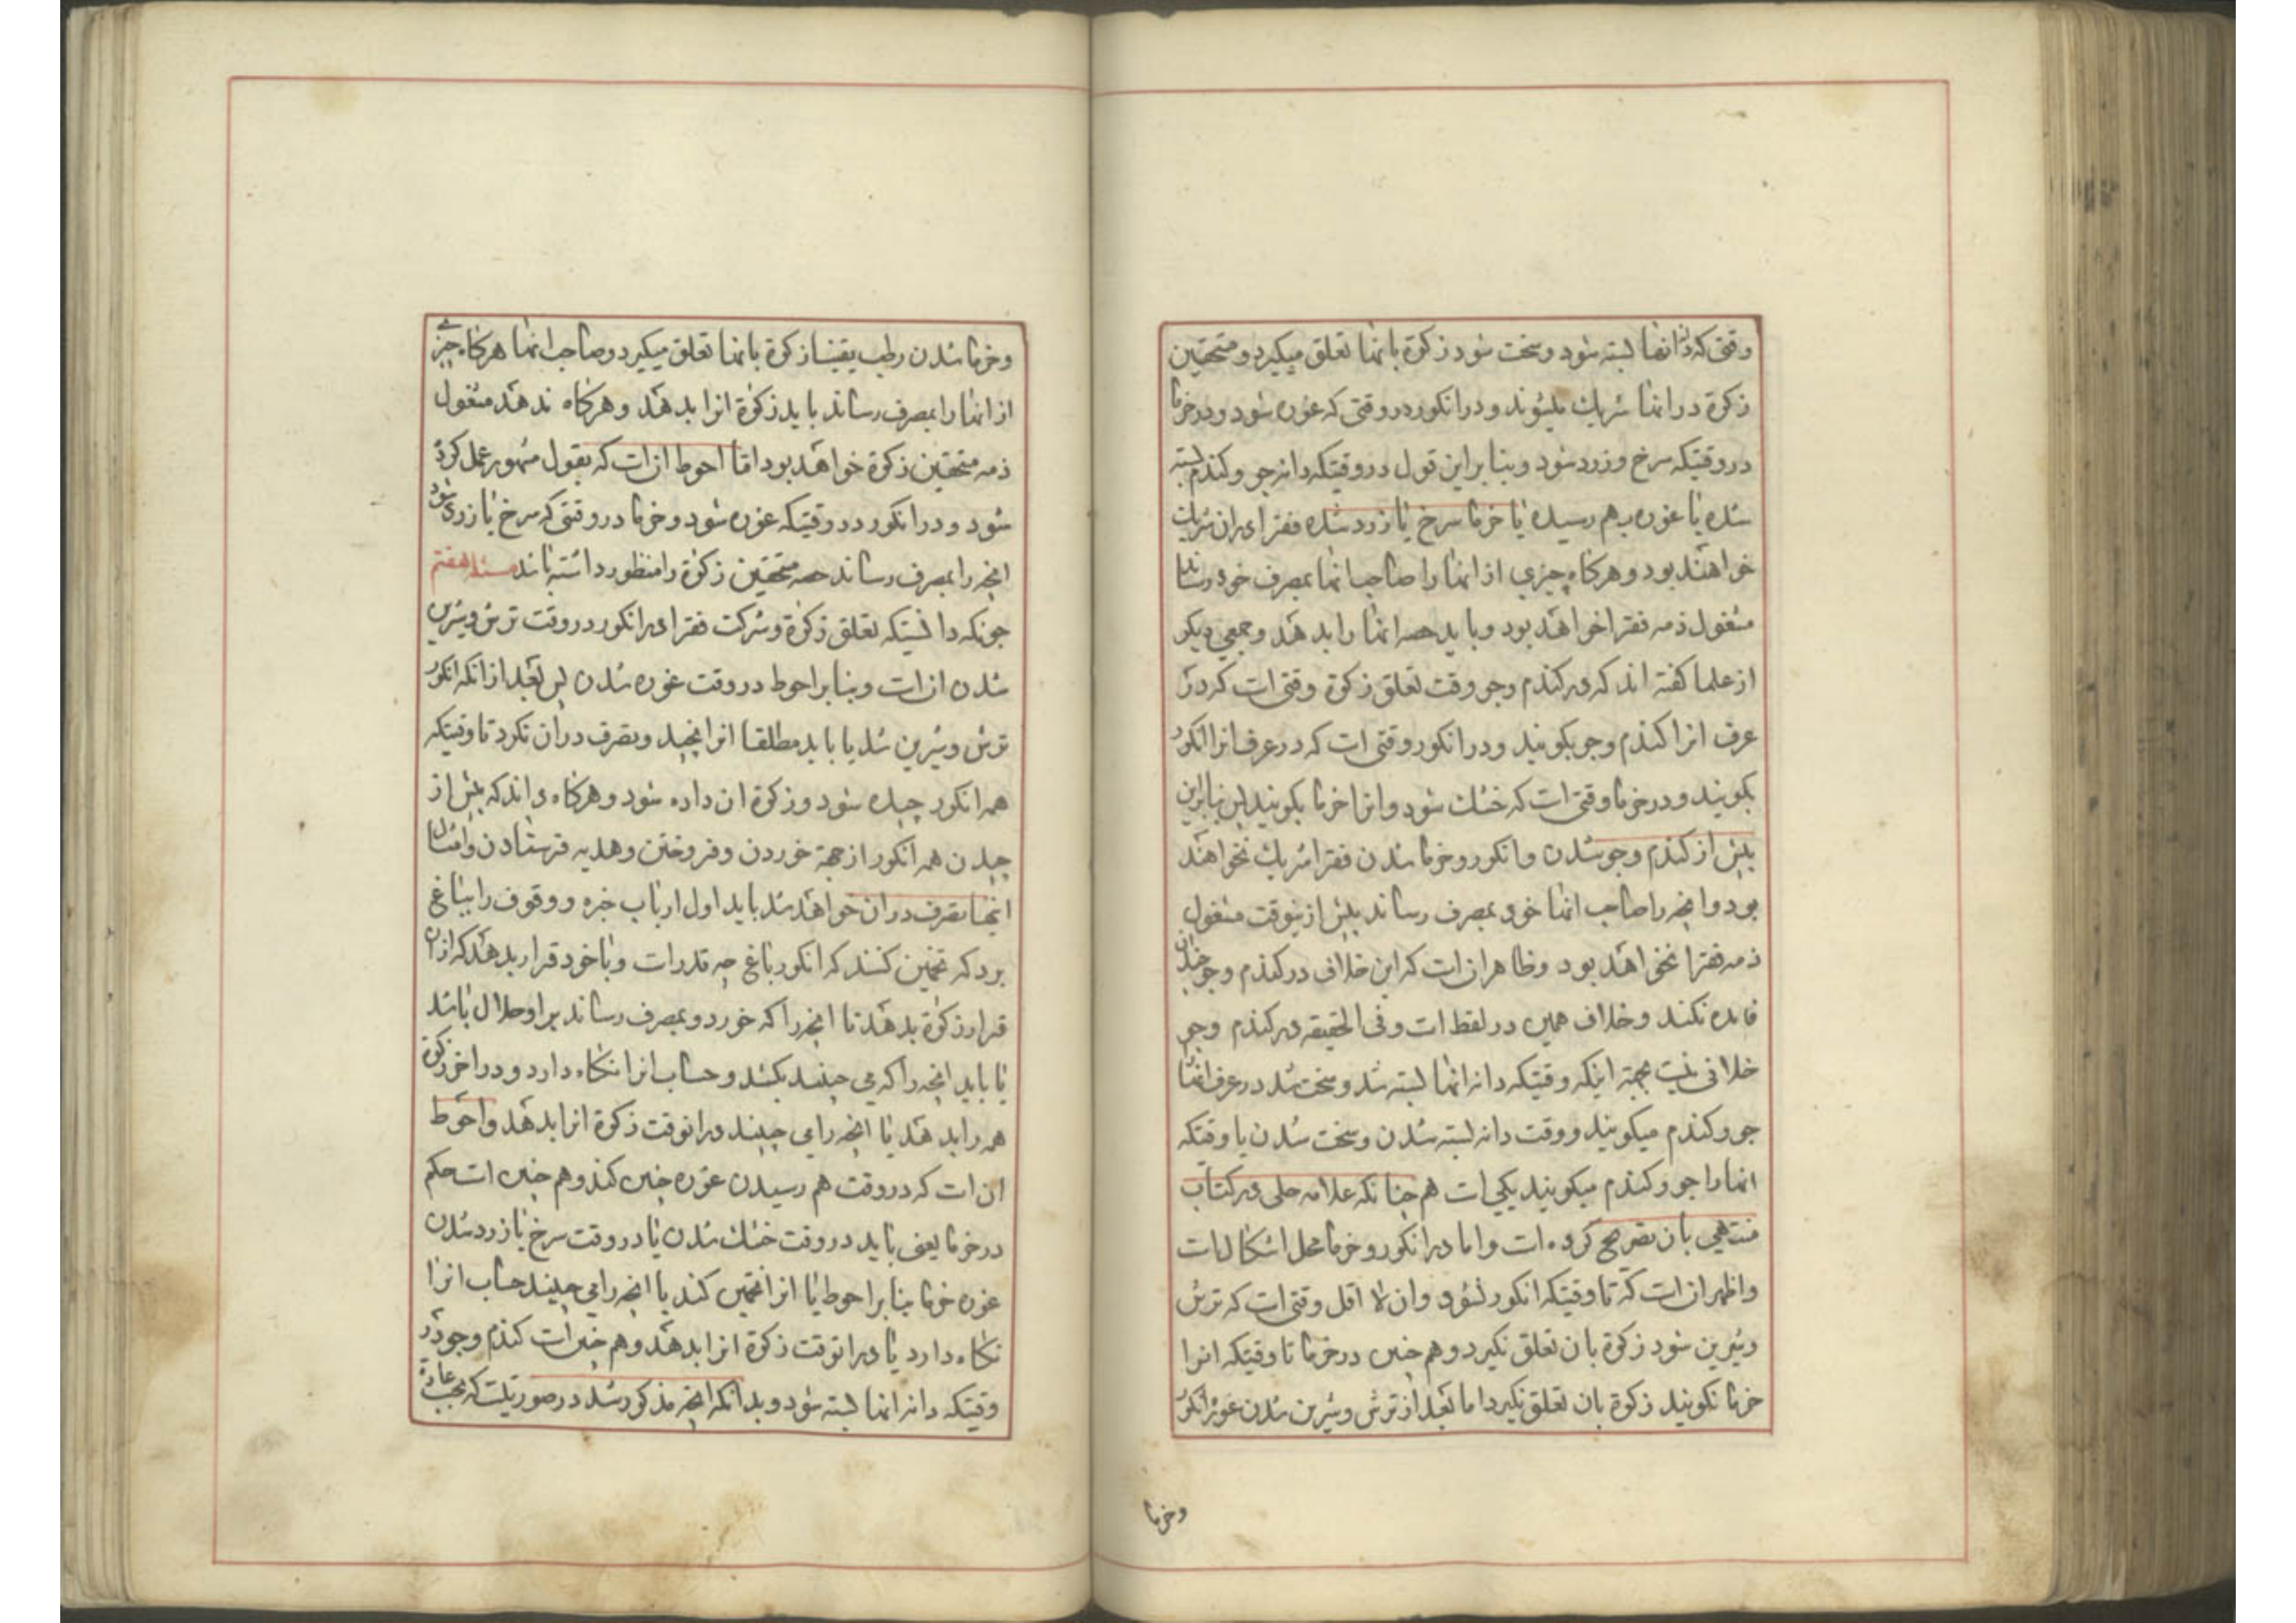 وقتی که دانه انها بسته شود و سخت شود زکوة بانها تعلق میکیرد و مستحقین
زکوة در انها شریک میشوند و در انکور در وقتی که غوره شود و در خرما
در وقتیکه سرخ و زرد شود و بنا بر این قول در وقتیکه دانه جو و کندم بسته
شده یا غوره بهم رسیده یا خرما سرخ یا زرد شده فقرا در ان شریک
خواهند بود و هرکاه چیزی از انها را صاحب انها بمصرف خود رساند
مشغول ذمه فقرا خواهد بود و باید حصه انها را بدهد و جمعی دیکر
از علما کفته اند که در کندم و جو وقت تعلق زکوة وقتی است که در
عرف انرا کندم و جو بکویند و در انکور وقتی است که در عرف انرا انکور
بکویند و در خرما وقتی است که خشک شود و انرا خرما بکویند پس بنا براین
پیش از کندم و جو شدن و انکور و خرما شدن فقرا شریک نخواهند
بود و انچه را صاحب انها خود بمصرف رساند پیش از ینوقت مشغول
ذمه فقرا نخواهد بود و ظاهر ان است که این خلاف در کندم و جو چندان
فایده نکند و خلاف همین در لفظ است و فی الحقیقه در کندم و جو
خلافی نیست بجهة اینکه وقتیکه دانه انها بسته شد و سخت شد در عرف انها
جو و کندم میکویند و وقت دانه بسته شدن و سخت شدن با وقتیکه
انها را جو و کندم میکویند یکی است هم چنانکه علامه حلی در کتاب
منتهی بان تصریح کرده است و اما در انکور و خرما محل اشکال است
و اظهر ان است که تا وقتیکه انکور نشود و ان لا اقل وقتی است که ترش
و شیرین شود زکوة بان تعلق نکیرد و هم چنین در خرما تا وقتیکه انرا
خرما نکویند زکوة بان تعلق نکیرد اما بعد از ترش و شیرین شدن غوره انکور
وخرما
و خرما شدن رطب یقینا زکوة بانها تعلق میکیرد و صاحب انها هرکاه چیزی
از انها را بمصرف رساند باید زکوة انرا بدهد و هرکاه ندهد مشغول
ذمه مستحقین زکوة خواهد بود اما احوط ان است که بقول مشهور عمل کرده
شود و در انکور در وقتیکه غوره شود و خرما در وقتی که سرخ یا زرد شود
انچه را بمصرف رساند حصه مستحقین زکوة را منظور داشته باشد مسئله هفتم
چونکه دانستیکه تعلق زکوة و شرکت فقرا در انکور در وقت ترش و شیرین
شدن ان است و بنا بر احوط در وقت غوره شدن پس بعد از انکه انکور
ترش و شیرین شد یا باید مطلقا انرا نچیند و تصرف در ان نکرد تا وقتیکه
همه انکور چیده شود و زکوة ان داده شود و هرکاه داند که پیش از
چیدن همه انکور از جهة خوردن و فروختن و هدیه فرستادن و امثال
اینها تصرف در ان خواهد شد باید اول ارباب خبره و وقوف را بباغ
برد که تخمین کنند که انکور باغ چه قدر است و با خود قرار بدهد که از ان
قرار زکوة بدهد تا انچه را که خورد و بمصرف رساند بر او حلال باشد
یا باید انچه را که می چیند بکشد و حساب انرا نکاه دارد و در اخر زکوة
همه را بدهد یا انچه را می چیند در انوقت زکوة انرا بدهد و احوط
ان است که در وقت هم رسیدن غوره چنین کند و هم چنین است حکم
در خرما یعنی باید در وقت خشک شدن یا در وقت سرخ یا زرد شدن
غوره خرما بنا بر احوط یا انرا تخمین کند یا انچه را می چیند حساب انرا
نکاه دارد یا در انوقت زکوة انرا بدهد و هم چنین است کندم و جو در
وقتیکه دانه انها بسته شود و بدانکه انچه مذکور شد در صورتیست که بحسب عادة